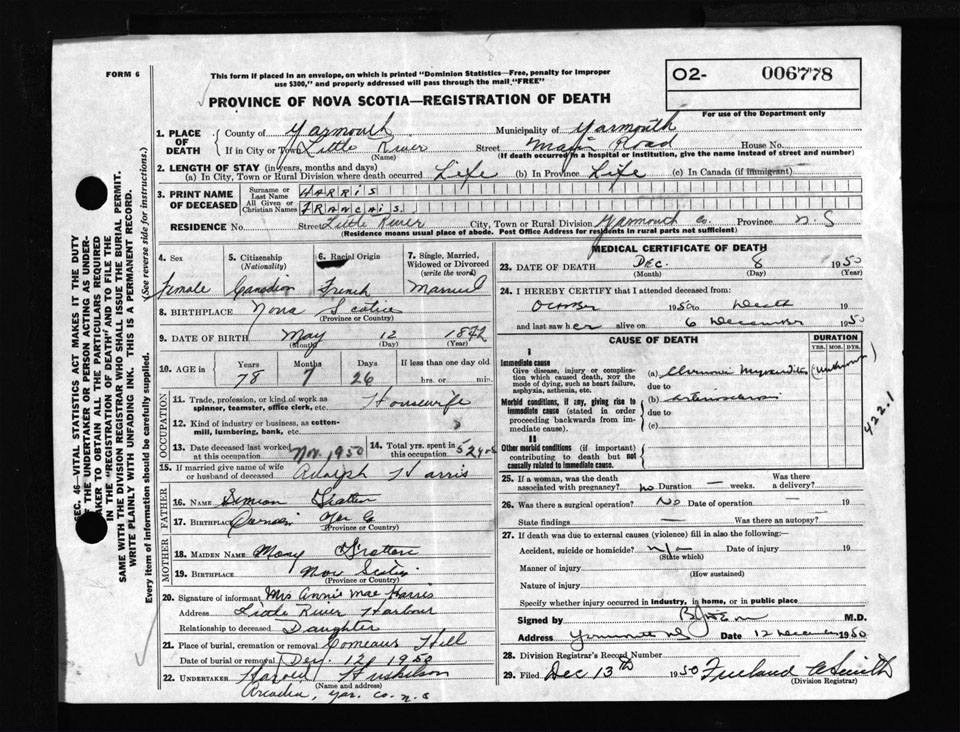 FORM 6
This form if placed in an envelope, on which is printed "Dominion Statistics—Free, penalty for improper
use $300," and properly addressed will pass through the mail "FREE"
O2- 006778
For use of the Department only
PROVINCE OF NOVA SCOTIA—REGISTRATION OF DEATH
1. PLACE OF DEATH
County of Yarmouth Municipality of Yarmouth
If in City or Town Little River Street Main Road House No.
(Name) (If death occurred in a hospital or institution, give the name instead of street and number)
2. LENGTH OF STAY (in years, months and days)
(a) In City, Town or Rural Division where death occurred Life (b) In Province Life (c) In Canada (if immigrant)
3. PRINT NAME OF DECEASED
Surname or Last Name HARRIS
All Given or Christian Names FRANCAIS
RESIDENCE No. Street Little River City, Town or Rural Division Yarmouth Co. Province N.S
(Residence means usual place of abode. Post Office Address for residents in rural parts not sufficient)
4. Sex Female
5. Citizenship (Nationality) Canadian
6. Racial Origin French
7. Single, Married, Widowed or Divorced (write the word) Married
8. BIRTHPLACE Nova Scotia
(Province or Country)
9. DATE OF BIRTH May 12 1872
(Month) (Day) (Year)
10. AGE in Years Months Days If less than one day old
78 7 26 hrs. or min.
OCCUPATION
11. Trade, profession or kind of work as Housewife
spinner, teamster, office clerk, etc.
12. Kind of industry or business, as cotton-
mill, lumbering, bank, etc.
13. Date deceased last worked at this occupation Nov. 1950
14. Total yrs. spent in this occupation 52 yrs
15. If married give name of wife or husband of deceased Adolph Harris
FATHER
16. NAME Simeon
17. BIRTHPLACE Yar Co
(Province or Country)
MOTHER
18. MAIDEN NAME Mary
19. BIRTHPLACE Nov Scotia
(Province or Country)
20. Signature of informant Mrs Annie Mae Harris
Address Little River Harbour
Relationship to deceased Daughter
21. Place of burial, cremation or removal Comeaus Hill
Date of burial or removal Dec. 12 1950
22. UNDERTAKER Harold Huskilson
(Name and address)
Arcadia, Yar. Co. N.S
MEDICAL CERTIFICATE OF DEATH
23. DATE OF DEATH Dec. 8 1950
(Month) (Day) (Year)
24. I HEREBY CERTIFY that I attended deceased from:
October 1950 to Death 19
and last saw her alive on 6 December 1950
CAUSE OF DEATH DURATION
YRS. MOS. DYS.
I
Immediate cause
Give disease, injury or compli-
cation which caused death, not the
mode of dying, such as heart failure,
asphyxia, asthenia, etc.
(a) Chronic Myocarditis (unknown)
due to
Morbid conditions, if any, giving rise to
immediate cause (stated in order
proceeding backwards from im-
mediate cause).
(b) Arteriosclerosis
due to
(c)
422.1
II
Other morbid conditions (if important)
contributing to death but not
causally related to immediate cause.
25. If a woman, was the death associated with pregnancy? No Duration — weeks. Was there a delivery?
26. Was there a surgical operation? No Date of operation — 19
State findings — Was there an autopsy?
27. If death was due to external causes (violence) fill in also the following:
Accident, suicide or homicide? n/a Date of injury 19
(State which)
Manner of injury
(How sustained)
Nature of injury
Specify whether injury occurred in industry, in home, or in public place
Signed by M.D.
Address Yarmouth NS Date 12 December 1950
28. Division Registrar's Record Number
29. Filed Dec 13th 1950 Freeland A Smith
(Division Registrar)
SEC. 46—VITAL STATISTICS ACT MAKES IT THE DUTY
OF THE UNDERTAKER OR PERSON ACTING AS UNDER-
TAKER TO OBTAIN ALL THE PARTICULARS REQUIRED
IN THE "REGISTRATION OF DEATH" AND TO FILE THE
SAME WITH THE DIVISION REGISTRAR WHO SHALL ISSUE THE BURIAL PERMIT.
WRITE PLAINLY WITH UNFADING INK. THIS IS A PERMANENT RECORD.
Every item of information should be carefully supplied. (See reverse side for instructions.)